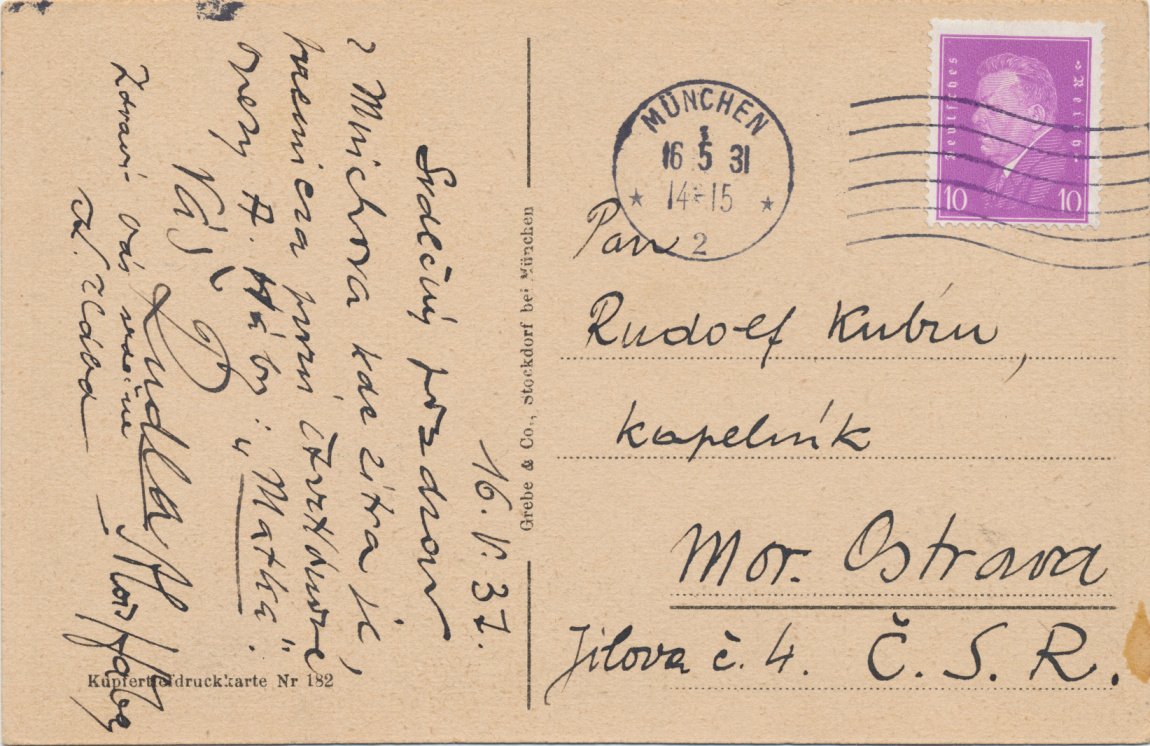 16. V. 31.
Srdečný pozdrav
z Mnichova kde zítra je
premiéra první čtvrttónové
opery A. Háby: „Matka".
Váš
Zdraví vás srdečně
Alois Hába
Grebe & Co., Stockdorf bei München
Kupfertiefdruckkarte Nr 182
MÜNCHEN
16 5 31
14-15
* *
2
Deutsches Reich
10 10
Pan
Rudolf Kubín,
kapelník
Mor. Ostrava
Jílova č. 4. Č. S. R.